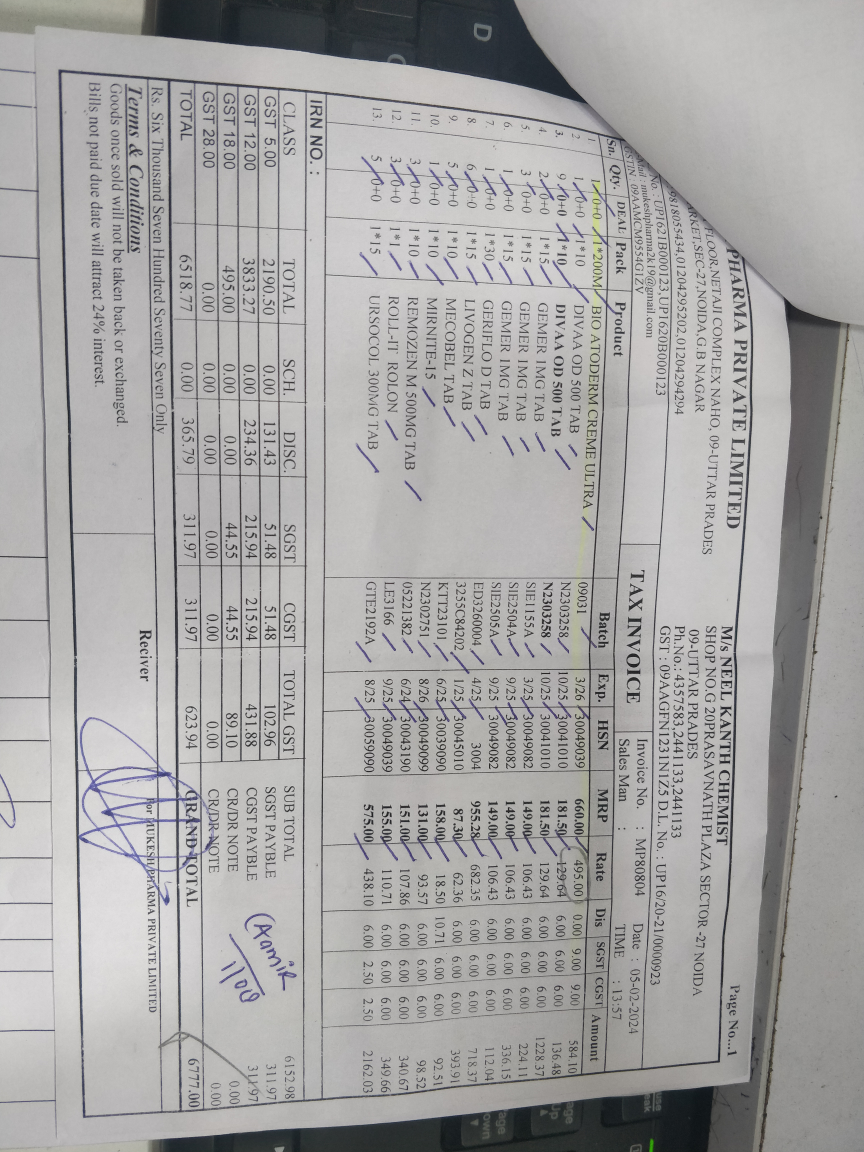 PHARMA PRIVATE LIMITED
FLOOR,NETAJI COMPLEX NAHO, 09-UTTAR PRADES
ARKET,SEC-27,NOIDA,G.B NAGAR
9818055434,01204295202,01204294294
No. : UP1621B000123,UP1620B000123
Mail : mukeshpharma2k19@gmail.com
GSTIN : 09AAMCM9554G1ZV
Page No...1
M/s NEEL KANTH CHEMIST
SHOP NO.G 20PRASAVNATH PLAZA SECTOR -27 NOIDA
09-UTTAR PRADES
Ph.No.: 4357583,2441133,2441133
GST : 09AAGFN1231N1Z5 D.L. No. : UP16/20-21/0000923
TAX INVOICE
Invoice No. : MP80804 Date : 05-02-2024
Sales Man : TIME : 13:57
Sn. Qty. DEAL Pack Product Batch Exp. HSN MRP Rate Dis SGST CGST Amount
1. 1 0+0 1*200M BIO ATODERM CREME ULTRA 09031 3/26 30049039 660.00 495.00 0.00 9.00 9.00 584.10
2 1 0+0 1*10 DIVAA OD 500 TAB N2303258 10/25 30041010 181.50 129.64 6.00 6.00 6.00 136.48
3. 9 0+0 1*10 DIVAA OD 500 TAB N2303258 10/25 30041010 181.50 129.64 6.00 6.00 6.00 1228.37
4. 2 0+0 1*15 GEMER 1MG TAB SIE1155A 3/25 30049082 149.00 106.43 6.00 6.00 6.00 224.11
5. 3 0+0 1*15 GEMER 1MG TAB SIE2504A 9/25 30049082 149.00 106.43 6.00 6.00 6.00 336.15
6. 1 0+0 1*15 GEMER 1MG TAB SIE2505A 9/25 30049082 149.00 106.43 6.00 6.00 6.00 112.04
7. 1 0+0 1*30 GERIFLO D TAB ED3260004 4/25 3004 955.28 682.35 6.00 6.00 6.00 718.37
8. 6 0+0 1*15 LIVOGEN Z TAB 3255C84202 1/25 30045010 87.30 62.36 6.00 6.00 6.00 393.91
9. 5 0+0 1*10 MECOBEL TAB KTT23101 6/25 30039090 158.00 18.50 10.71 6.00 6.00 92.51
10. 1 0+0 1*10 MIRNITE-15 N2302751 8/26 30049099 131.00 93.57 6.00 6.00 6.00 98.52
11. 3 0+0 1*10 REMOZEN M 500MG TAB 05221382 6/24 30043190 151.00 107.86 6.00 6.00 6.00 340.67
12. 3 0+0 1*1 ROLL-IT ROLON LE3166 9/25 30049039 155.00 110.71 6.00 6.00 6.00 349.66
13. 5 0+0 1*15 URSOCOL 300MG TAB GTE2192A 8/25 30059090 575.00 438.10 6.00 2.50 2.50 2162.03
IRN NO. :
CLASS TOTAL SCH. DISC. SGST CGST TOTAL GST
GST 5.00 2190.50 0.00 131.43 51.48 51.48 102.96
GST 12.00 3833.27 0.00 234.36 215.94 215.94 431.88
GST 18.00 495.00 0.00 0.00 44.55 44.55 89.10
GST 28.00 0.00 0.00 0.00 0.00 0.00 0.00
TOTAL 6518.77 0.00 365.79 311.97 311.97 623.94
SUB TOTAL 6152.98
SGST PAYBLE 311.97
CGST PAYBLE 311.97
CR/DR NOTE 0.00
CR/DR NOTE 0.00
GRAND TOTAL 6777.00
Rs. Six Thousand Seven Hundred Seventy Seven Only
Terms & Conditions
Goods once sold will not be taken back or exchanged.
Bills not paid due date will attract 24% interest.
Reciver
For MUKESH PHARMA PRIVATE LIMITED